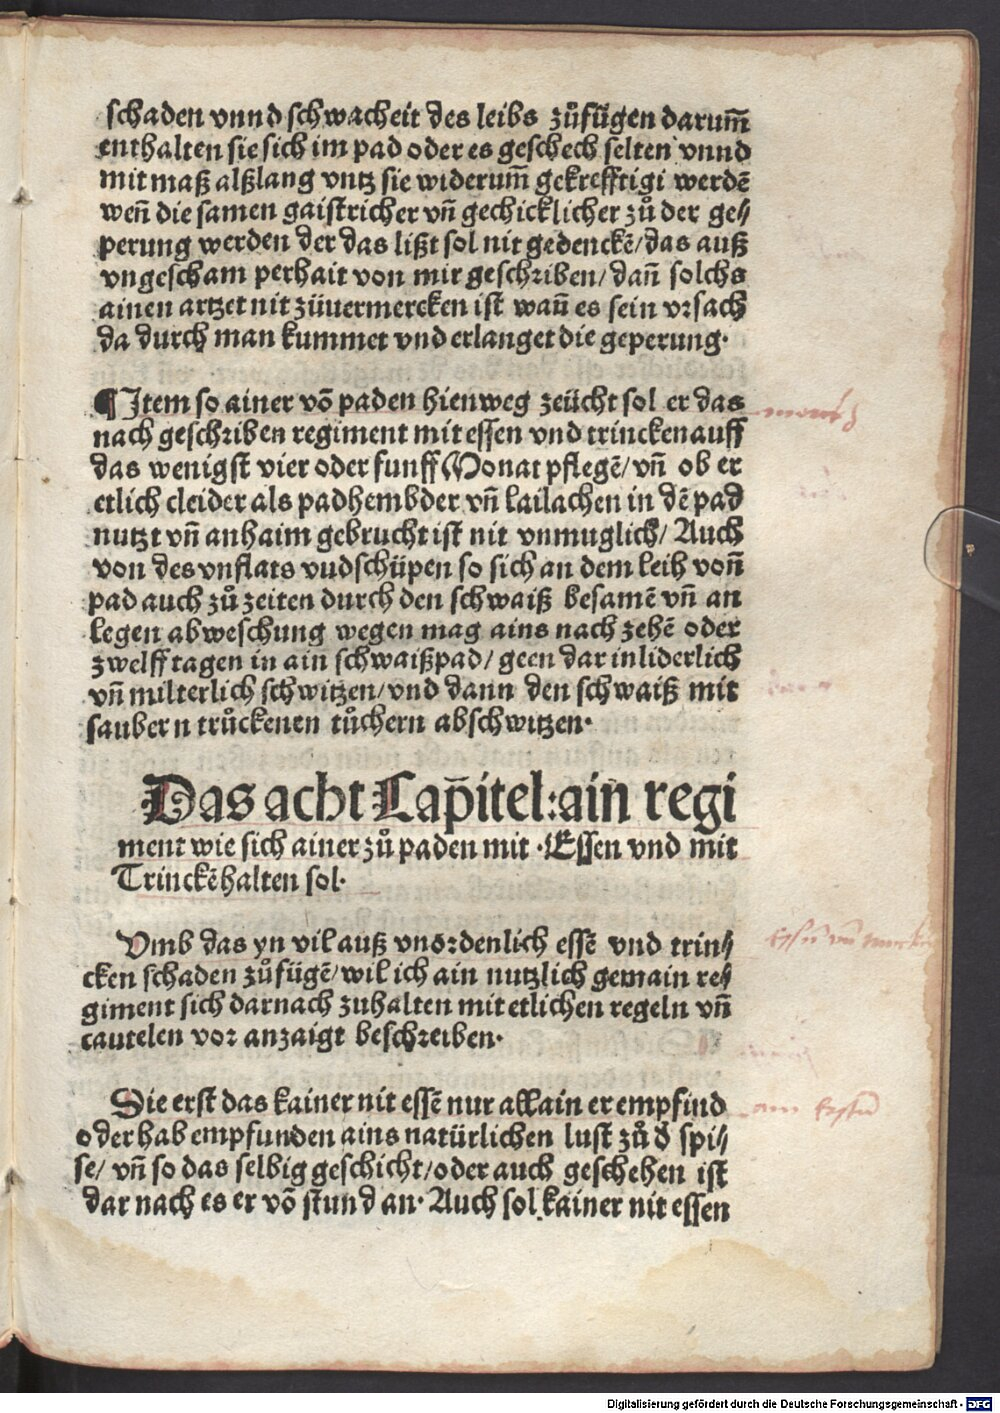 schaden vnnd schwacheit des leibs zůfügen darum̄
enthalten sie sich im pad oder es geschech selten vnnd
mit maß alßlang vntz sie widerum̄ gekrefftigt werdē
wen̄ die samen gaistricher vn̄ gechicklicher zů der ge⸗
perung werden der das lißt sol nit gedenckē/ das auß
vngescham perhait von mir geschriben/ dan̄ solchs
ainen artzet nit züuermercken ist wan̄ es sein vrsach
da durch man kummet vnd erlanget die geperung·
¶Item so ainer vō paden hienweg zeücht sol er das
nach geschriben regiment mit essen vnd trincken auff
das wenigst vier oder funff Monat pflegē/ vn̄ ob er
etlich cleider als padhembder vn̄ lailachen in dē pad
nutzt vn̄ anhaim gebrucht ist nit vnmuglich/ Auch
von des vnflats vudschüpen so sich an dem leib von̄
pad auch zů zeiten durch den schwaiß besamē vn̄ an
legen abweschung wegen mag ains nach zehē oder
zwelff tagen in ain schwaißpad/ geen dar in liderlich
vn̄ milterlich schwitzen/ vnd dann den schwaiß mit
saubern trůckenen tůchern abschwitzen·
Das acht Cap̄itel:ain regi
ment wie sich ainer zů paden mit ·Essen vnd mit
Trinckē halten sol·
Vmb das yn vil auß vnordenlich essē vnd trin⸗
cken schaden zůfügē/ wil ich ain nutzlich gemain re⸗
giment sich darnach zuhalten mit etlichen regeln vn̄
cautelen vor anzaigt beschreiben·
Die erst das kainer nit essē nur allain er empfind
oder hab empfunden ains natürlichen lust zů d̕ spi⸗
se/ vn̄ so das selbig geschicht/ oder auch geschehen ist
dar nach es er vō stund an· Auch sol kainer nit essen
Digitalisierung gefördert durch die Deutsche Forschungsgemeinschaft - DFG